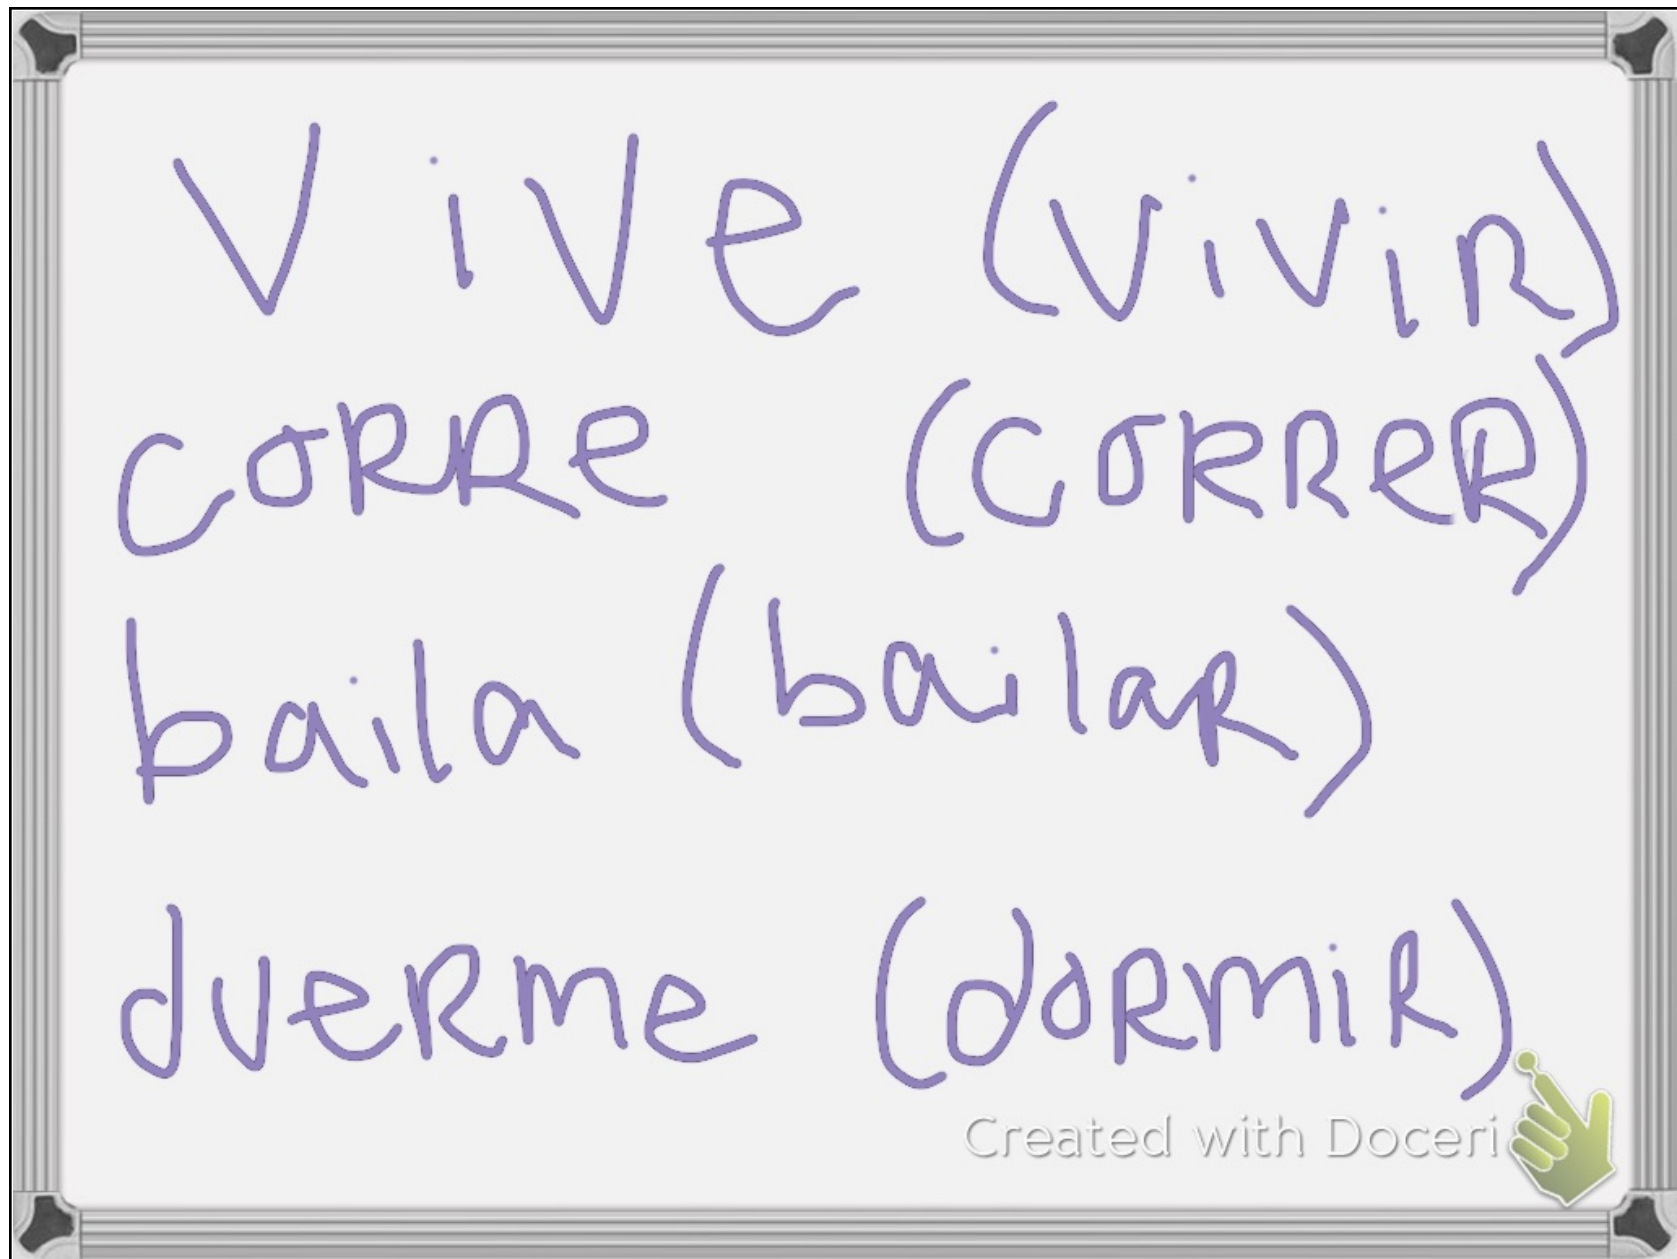 Vive (vivir)
corre (correr)
baila (bailar)
duerme (dormir)
Created with Doceri